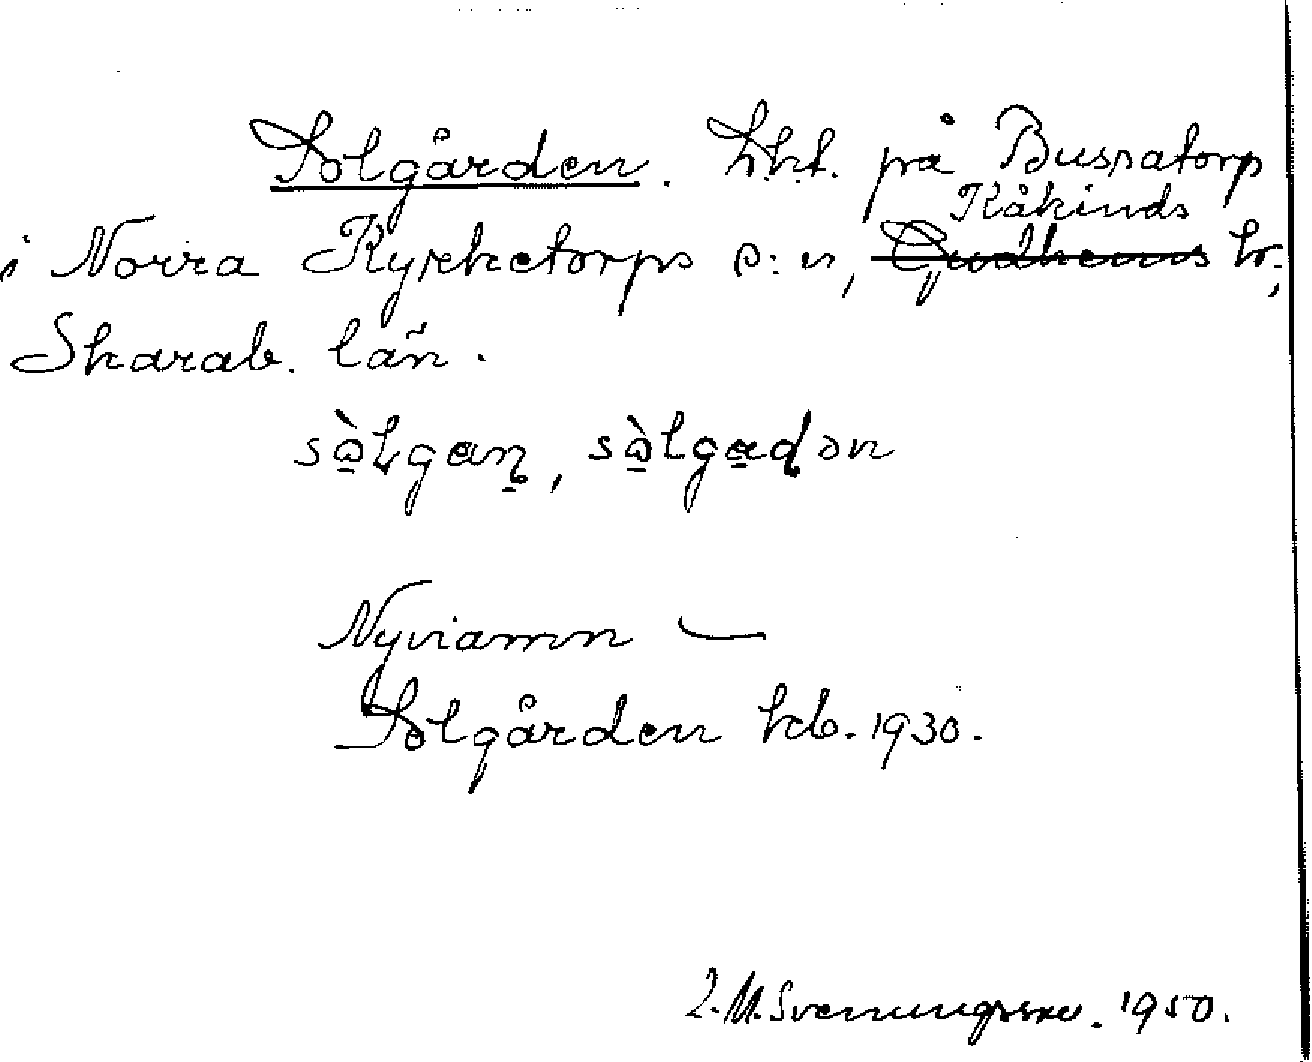 Solgården. Lht. på Buspatorp
Kåkinds
i Norra Kyrketorps s:n, Gudhems hr.,
Skarab. län.
sò̱Lgaṉ, sò̱lga̱dən
Nyviamn —
Solgården hcb. 1930.
Svenungsson. 1950.